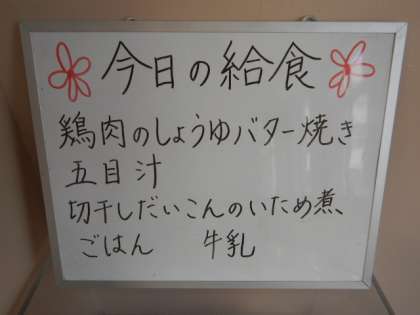 今日の給食
鶏肉のしょうゆバター焼き
五目汁
切干しだいこんのいため煮、
ごはん 牛乳